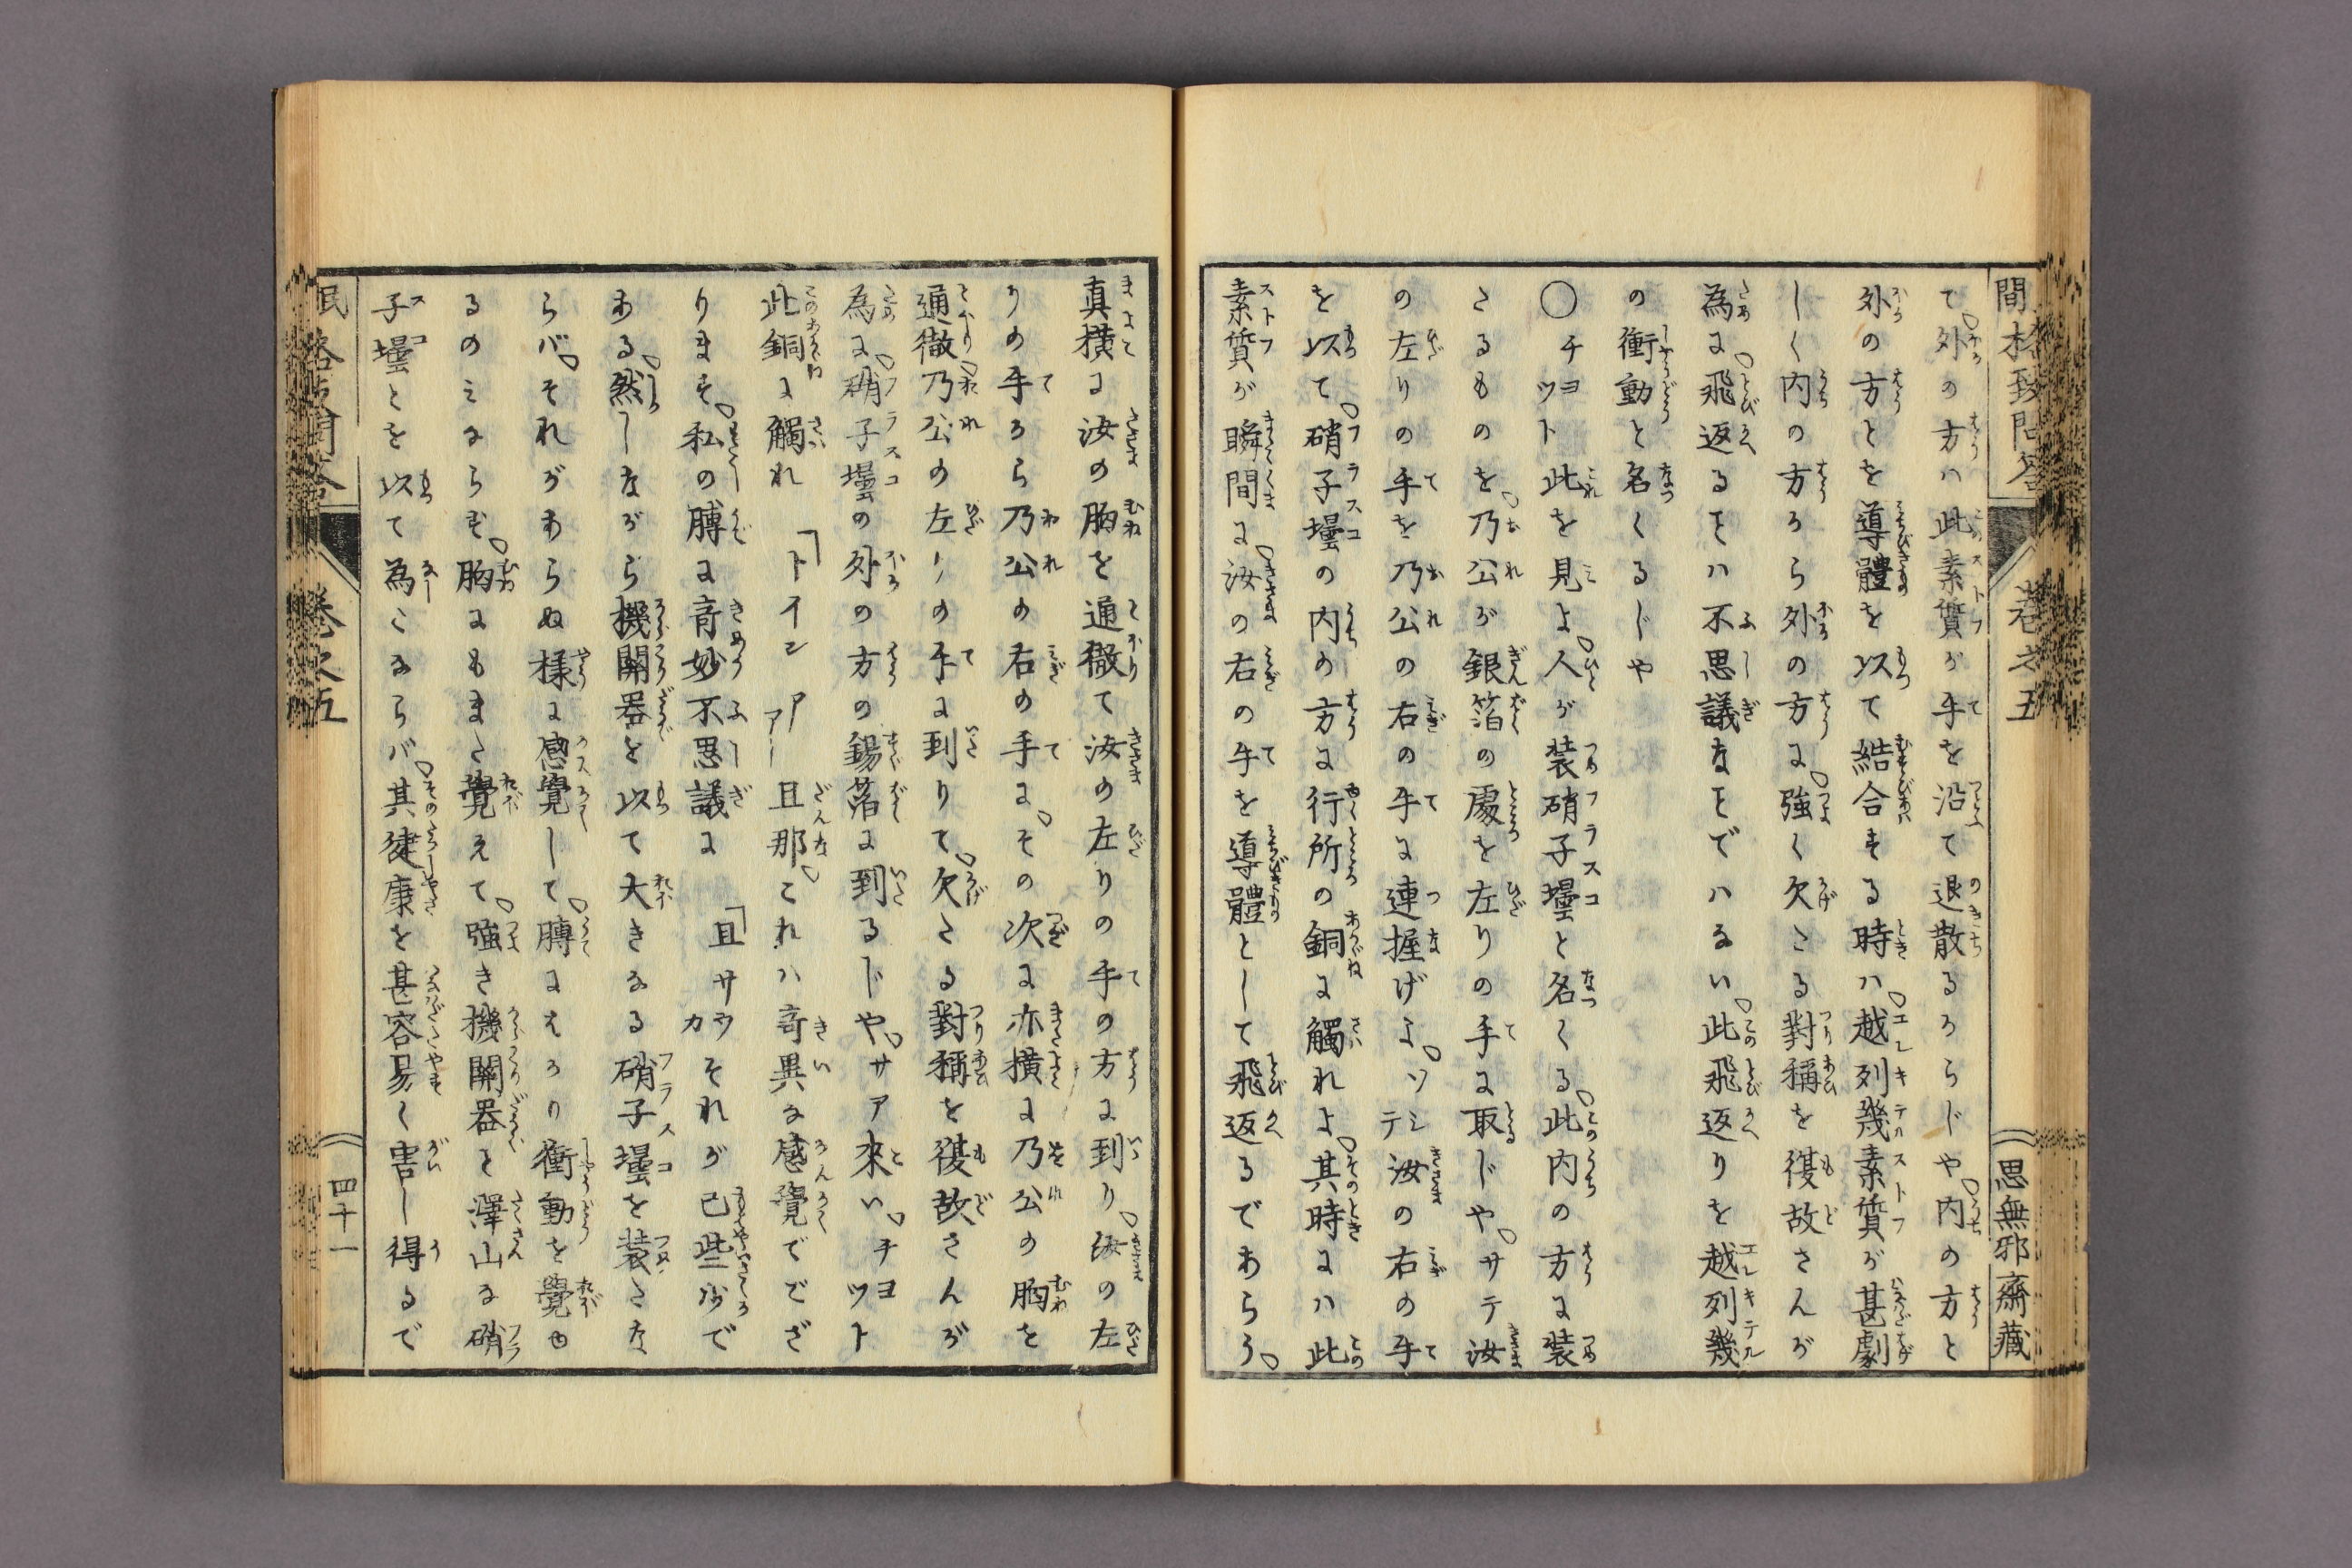 て外の方ハ此素質が手を沿て退散るからじや内の方と
外の方とを導體を以て結合する時ハ越列幾素質が甚劇
しく内の方から外の方に強く欠たる對稱を復故さんが
為に飛返ることハ不思議なことでハない此飛返りを越列幾
の衝動と名くるじや
〇チヨツト此を見よ人が装硝子壜と名くる此内の方に装
たるものを乃公が銀箔の處を左りの手に取じやサテ汝
の左りの手を乃公の右の手に連握げよソシテ汝の右の手
を以て硝子壜の内の方に行所の銅に觸れよ其時にハ此
素質が瞬間に汝の右の手を導體として飛返るであらう
思無邪齋藏
真横に汝の胸を通徹て汝の左りの手の方に到り汝の左
りの手から乃公の右の手にその次に亦横に乃公の胸を
通徹乃公の左りの手に到りて欠たる對稱を復故さんが
為に硝子壜の外の方の錫箔に到るじやサア來いチヨツト
此銅に觸れ「トイン アアー 旦那これハ奇異な感覺でござ
ります私の膊に奇妙不思議に「旦サウカそれが已些少で
ある然しながら機關器を以て大きなる硝子壜を装たな
らバそれがあらぬ様に感覺して膊にえらり衝動を覺ゆ
るのミならず胸にもまた覺えて強き機關器と澤山な硝
子壜とを以て為ことならバ其健康を甚容易く害し得るで
巻之五
四十一